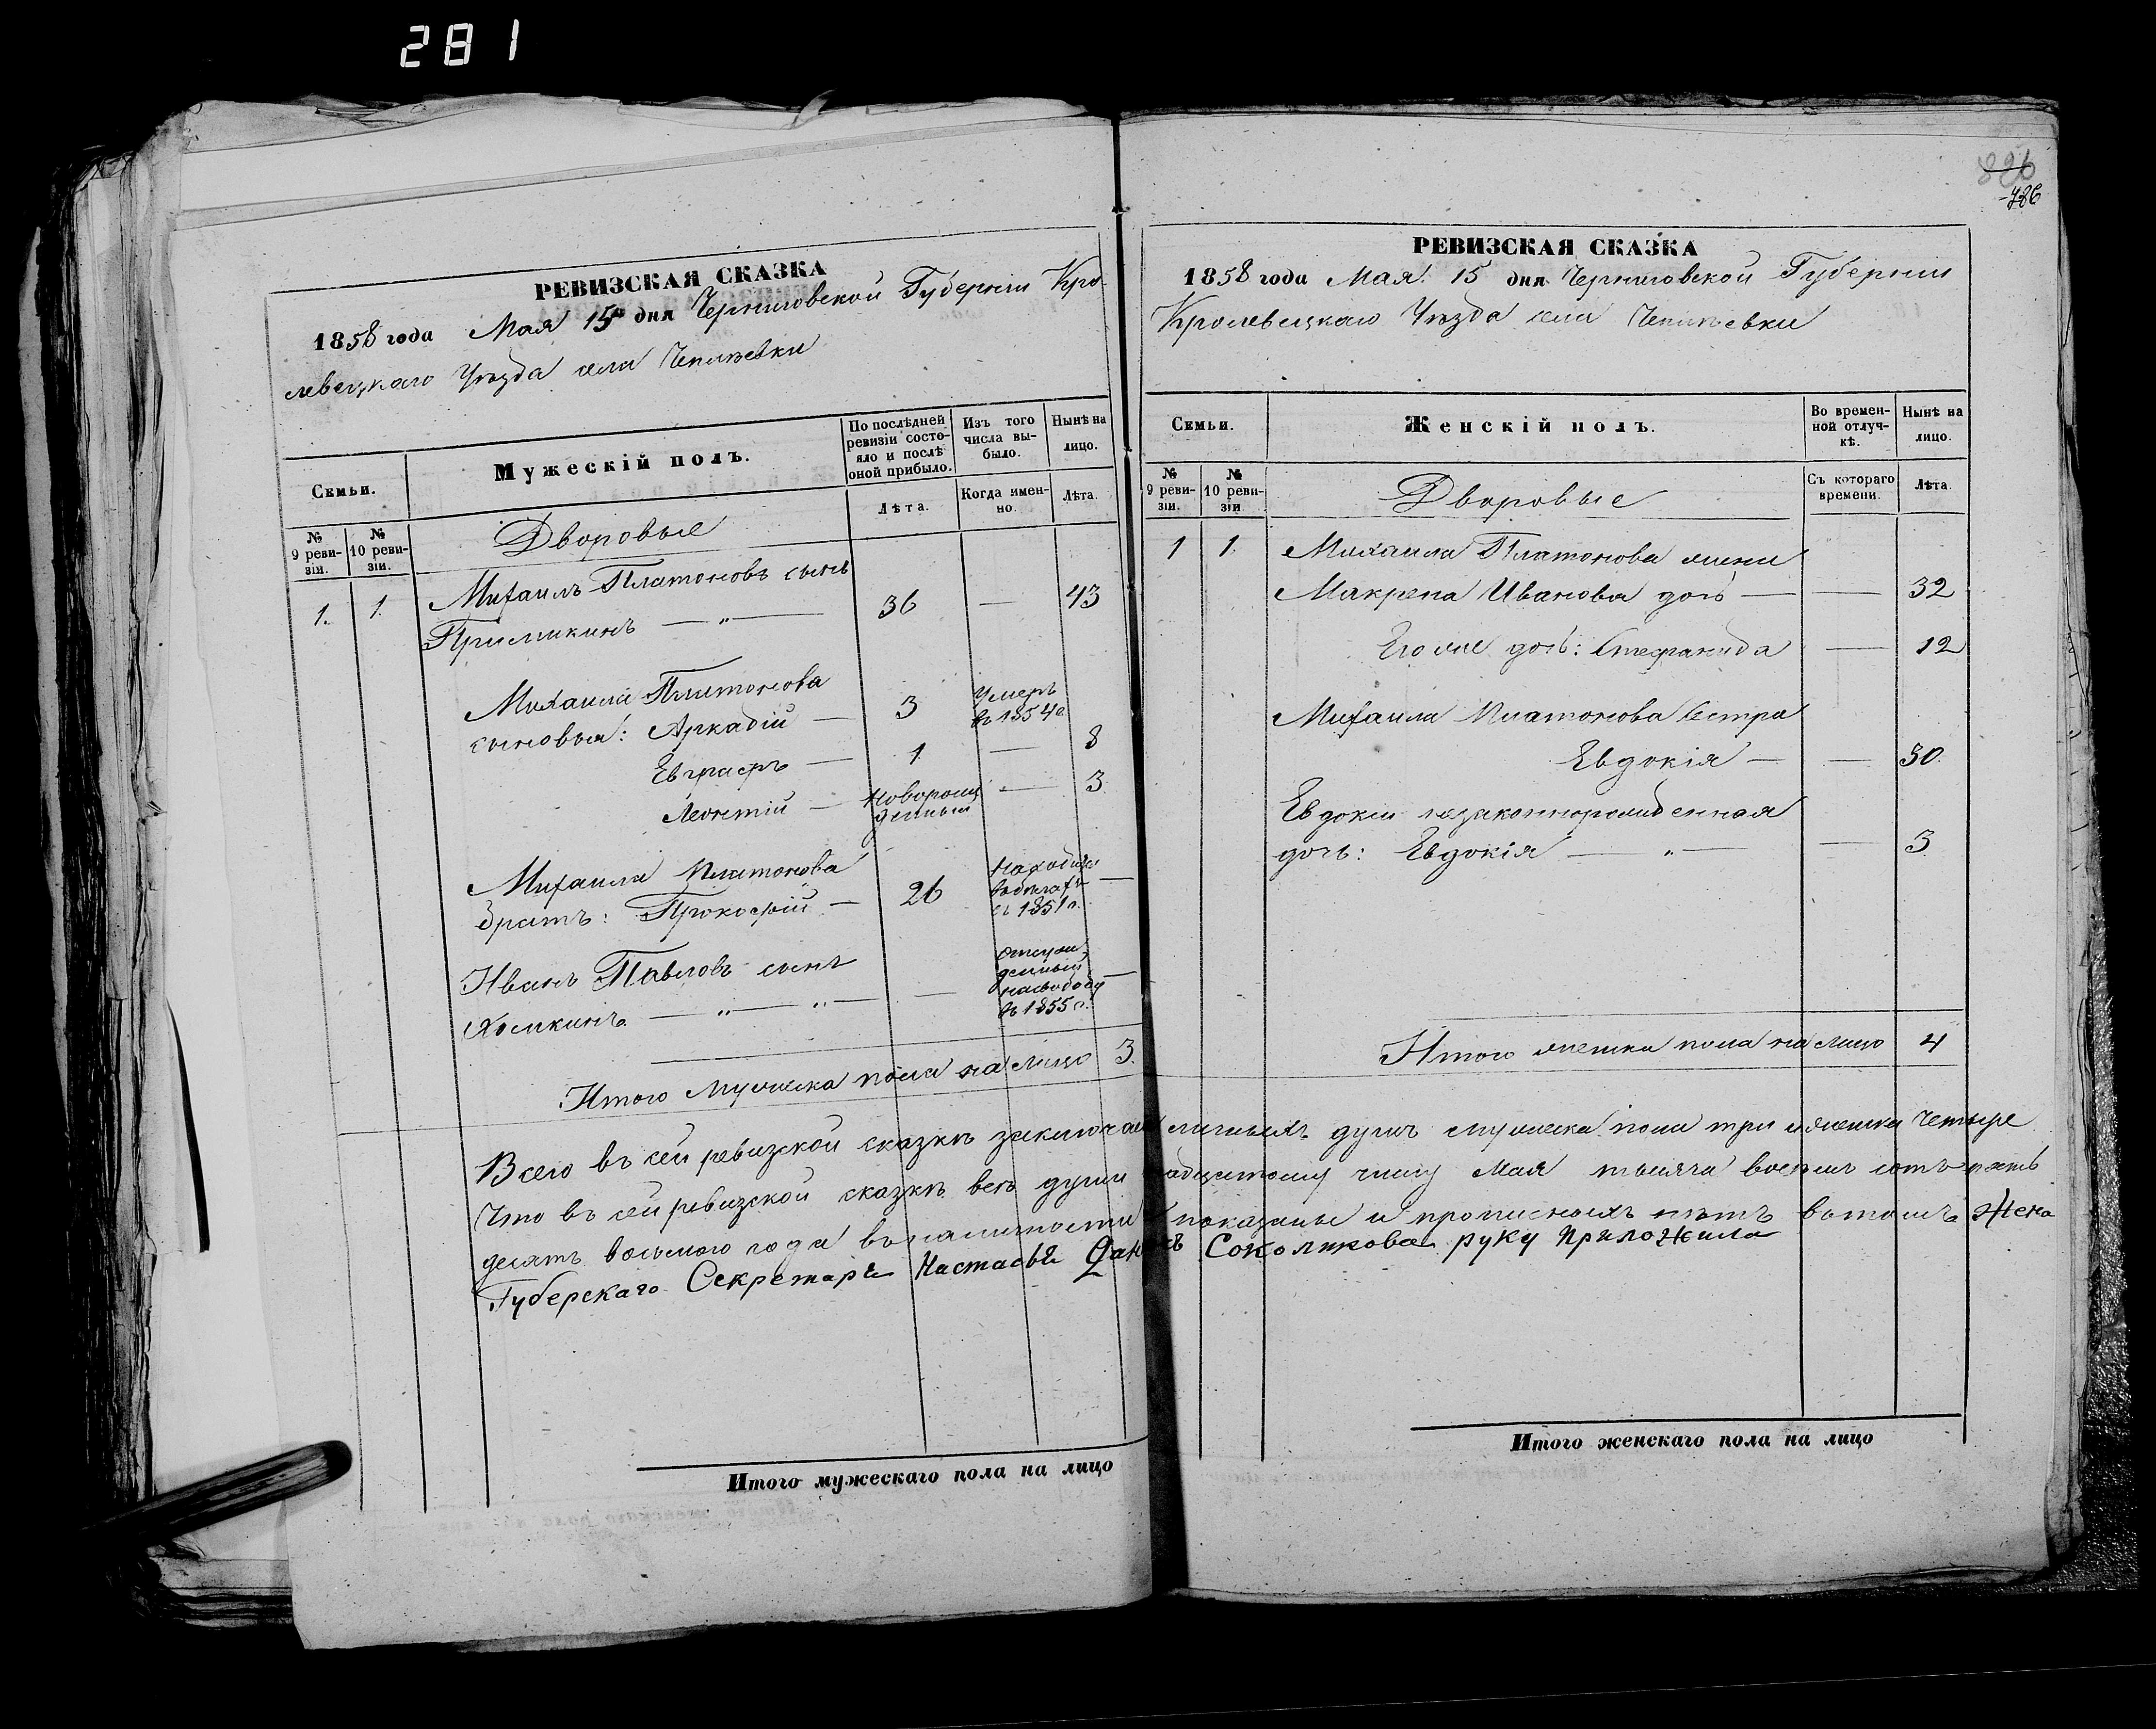 281
РЕВИЗСКАЯ СКАЗКА
1858 года Мая 15 дня Черниговской Губерніи Кро-
левецкаго Уѣзда села Чепліевки
Семьи.
Мужескій полъ.
По послѣдней ревизіи состояло и послѣ оной прибыло.
Изъ того числа выбыло.
Нынѣ на лицо.
№ 9 ревизіи.
№ 10 ревизіи.
Лѣта.
Когда именно.
Лѣта.
Дворовые
1. 1. Михаилъ Платоновъ сынъ
36 — 43
Михаила Платонова
сыновья: Аркадій — 3 Умеръ въ 1854 г.
Евграфъ — 1 — 8
Леонтій — Новорожденный — 3
Михаила Платонова
братъ: Прокофій — 26 въ бѣгахъ съ 1851 г. —
Иванъ Павловъ сынъ
Хомкинъ — " — " — — отсужденный на свободу въ 1855 г. —
Итого Мужеска пола на лицо 3.
РЕВИЗСКАЯ СКАЗКА
1858 года Мая 15 дня Черниговской Губерніи
Кролевецкаго Уѣзда села Чепліевки
Семьи.
Женскій полъ.
Во временной отлучкѣ.
Нынѣ на лицо.
№ 9 ревизіи.
№ 10 ревизіи
Съ котораго времени.
Лѣта.
Дворовые
1 1. Михаила Платонова жена
Макрена Иванова дочь — — 32
Его же дочь: Степанида — 12
Михаила Платонова сестра
Евдокія — — 30.
Евдокіи незаконнорожденная
дочь: Евдокія — " — — 3
Итого женска пола на лицо 4
Всего въ сей ревизской сказкѣ заключает личныхъ душъ мужеска пола три и женска четыре
Что въ сей ревизской сказкѣ всѣ души числу Мая тысяча восемь сотъ пять
десятъ восьмого года въ наличности показаны и прописныхъ нѣтъ въ томъ Жена
Губерскаго Секретаря Настасья Соколикова руку приложила
Итого мужескаго пола на лицо
Итого женскаго пола на лицо